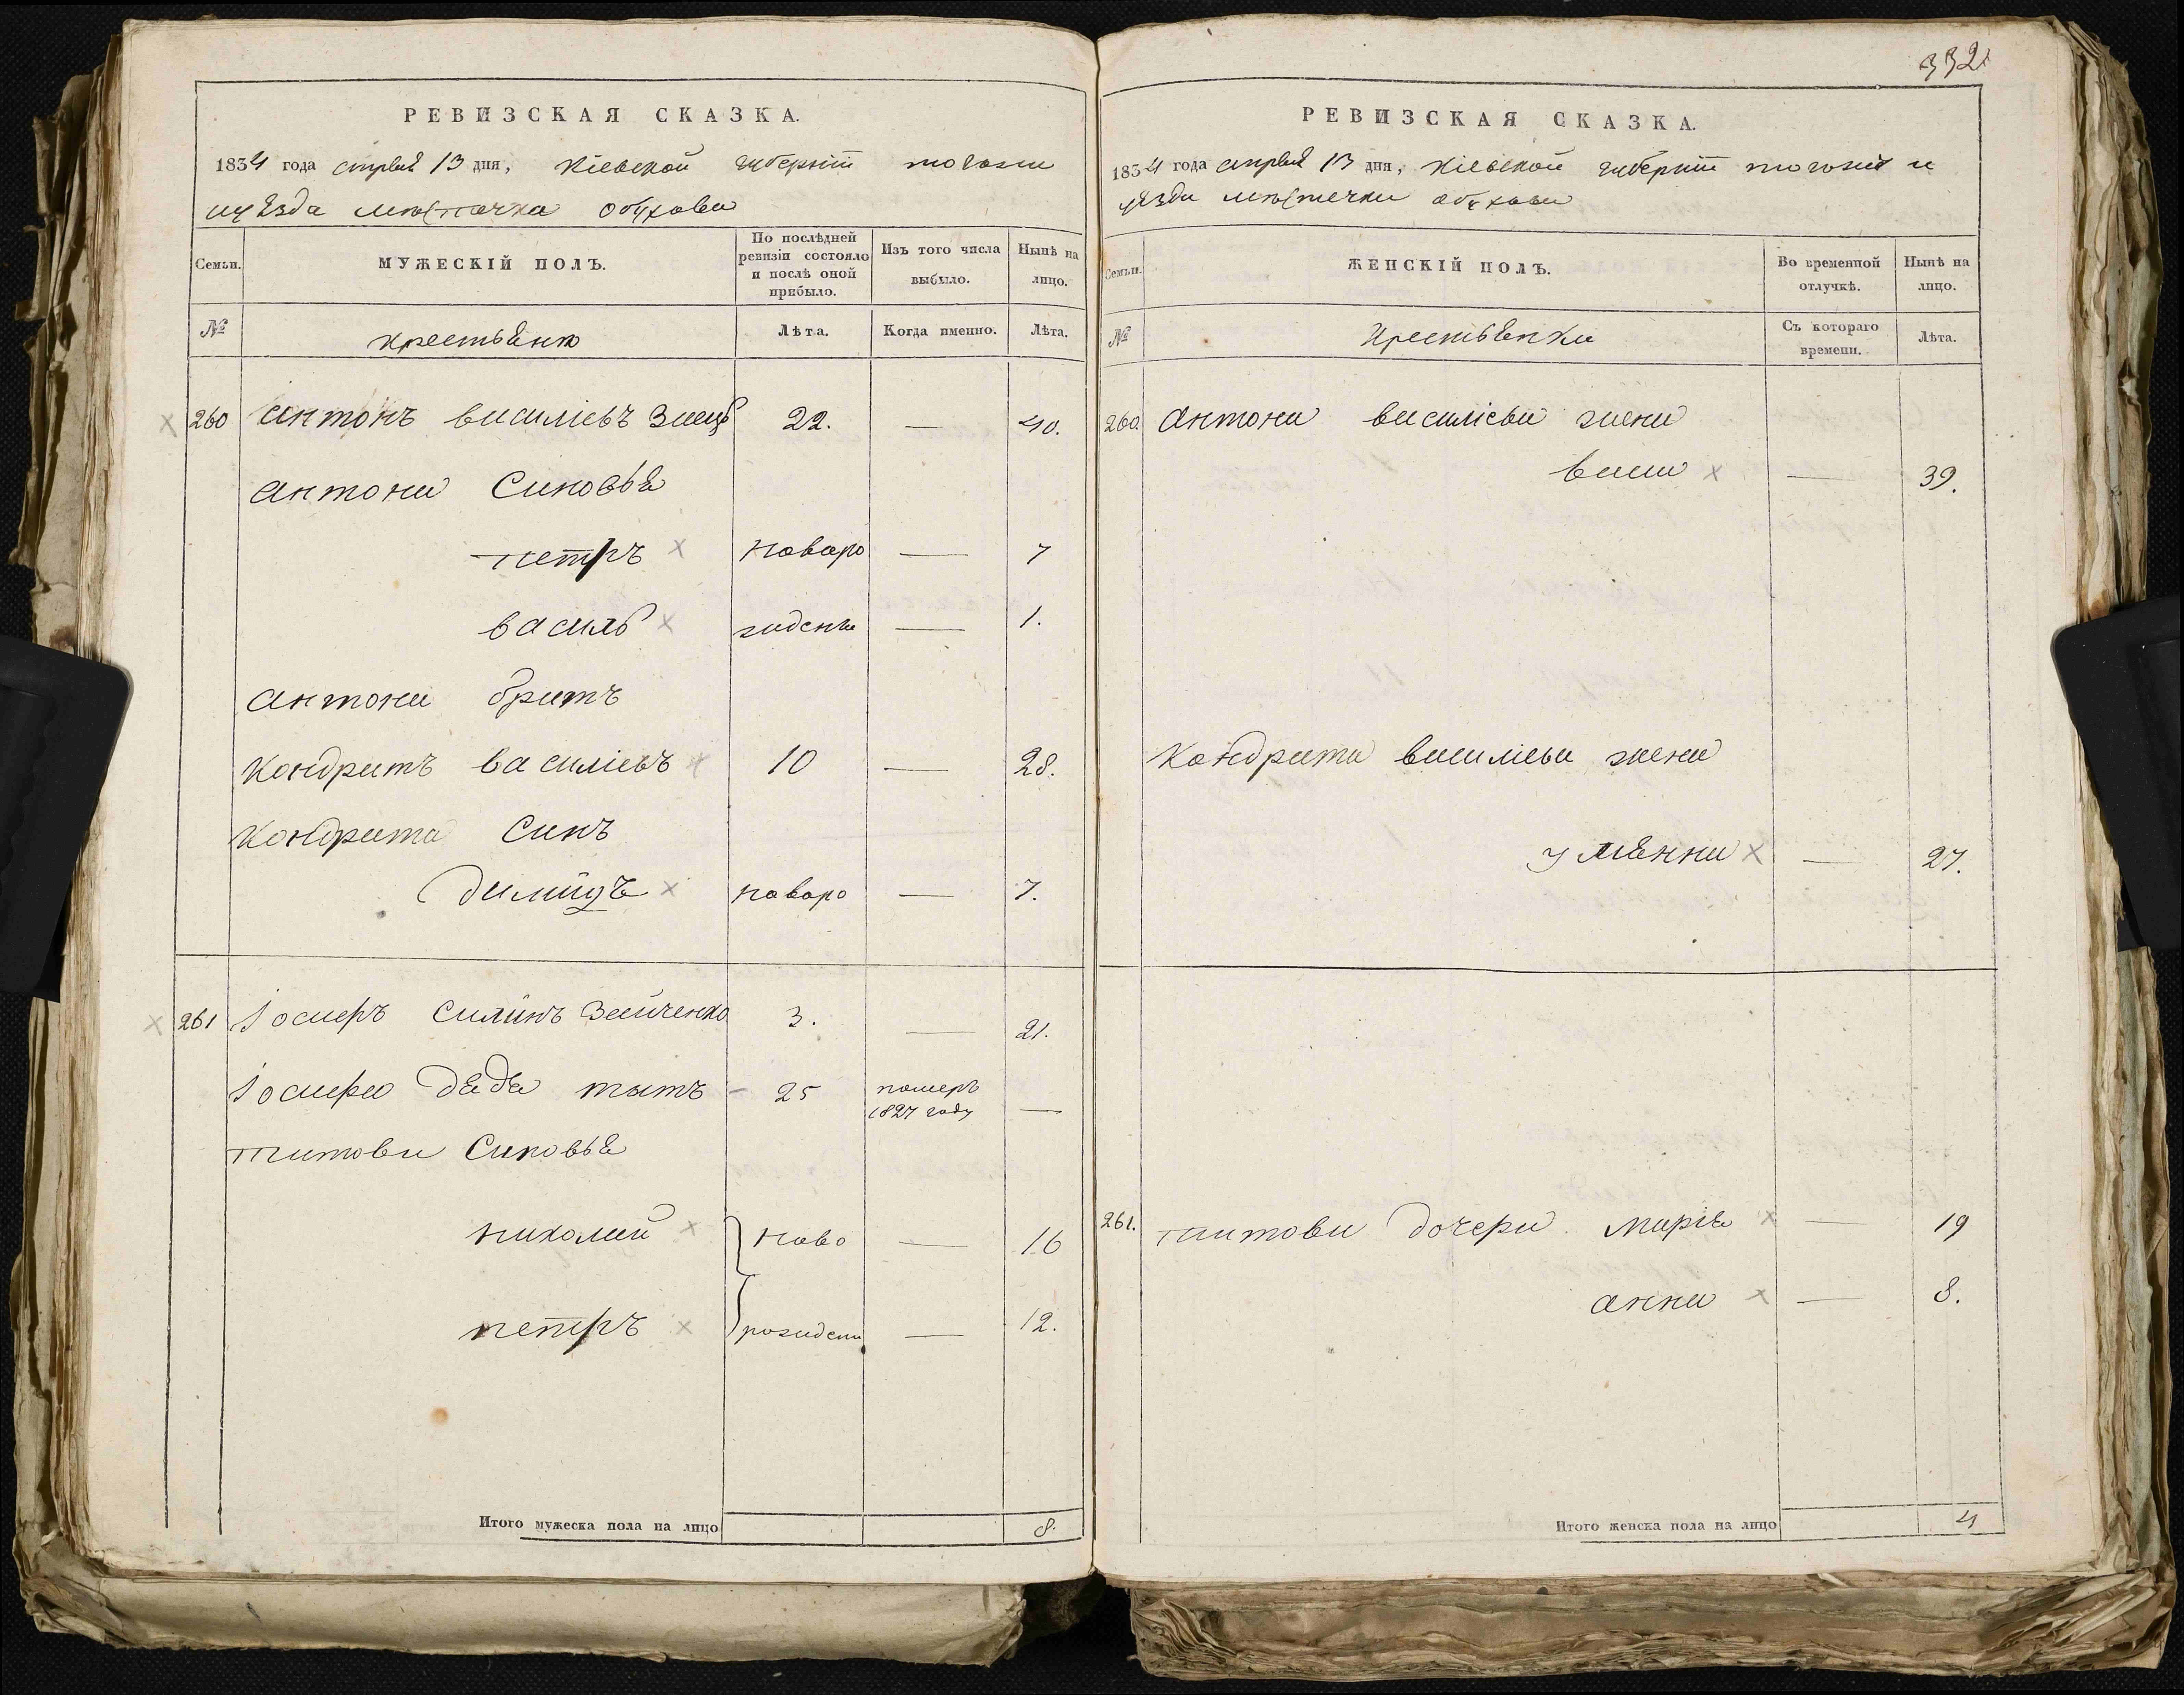 РЕВИЗСКАЯ СКАЗКА.
1834 года апреля 13 дня, Кіевской губерніи тогоже
уѣзда местечка Обухова
Семьи.
МУЖЕСКІЙ ПОЛЪ.
По послѣдней ревизіи состояло и послѣ оной прибыло.
Изъ того числа выбыло.
Нынѣ на лицо.
№
крестьяне
Лѣта.
Когда именно.
Лѣта.
260 антонъ василіевъ Заецъ 22. — 40.
антона Синовья
петръ новоро — 7
василь жденъ — 1.
антона братъ
Кондратъ василіевъ 10 — 28.
Кондрата Синъ
новоро — 7.
261 Іосифъ Силинъ Зайченко 3. — 21.
Іосифа дядя тытъ 25 померъ 1827 году —
титови Синовья
николай ново — 16
петръ рождени — 12.
Итого мужеска пола на лицо 8.
332
РЕВИЗСКАЯ СКАЗКА.
1834 года апреля 13 дня, Кіевской губерніи тогоже
уѣзда местечка Обухова
Семьи.
ЖЕНСКІЙ ПОЛЪ.
Во временной отлучкѣ.
Нынѣ на лицо.
№
Крестьянки
Съ котораго времени.
Лѣта.
260. Антона василіева жена
— 39.
Кондрата василіева жена
улянна — 27.
261. титови дочери марія — 19
анна — 8.
Итого женска пола на лицо 4